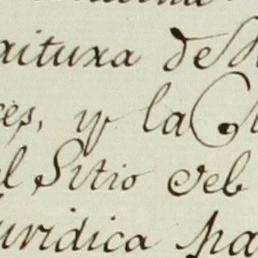 aitura de
ces, y la
l Sitio del
uridica pa